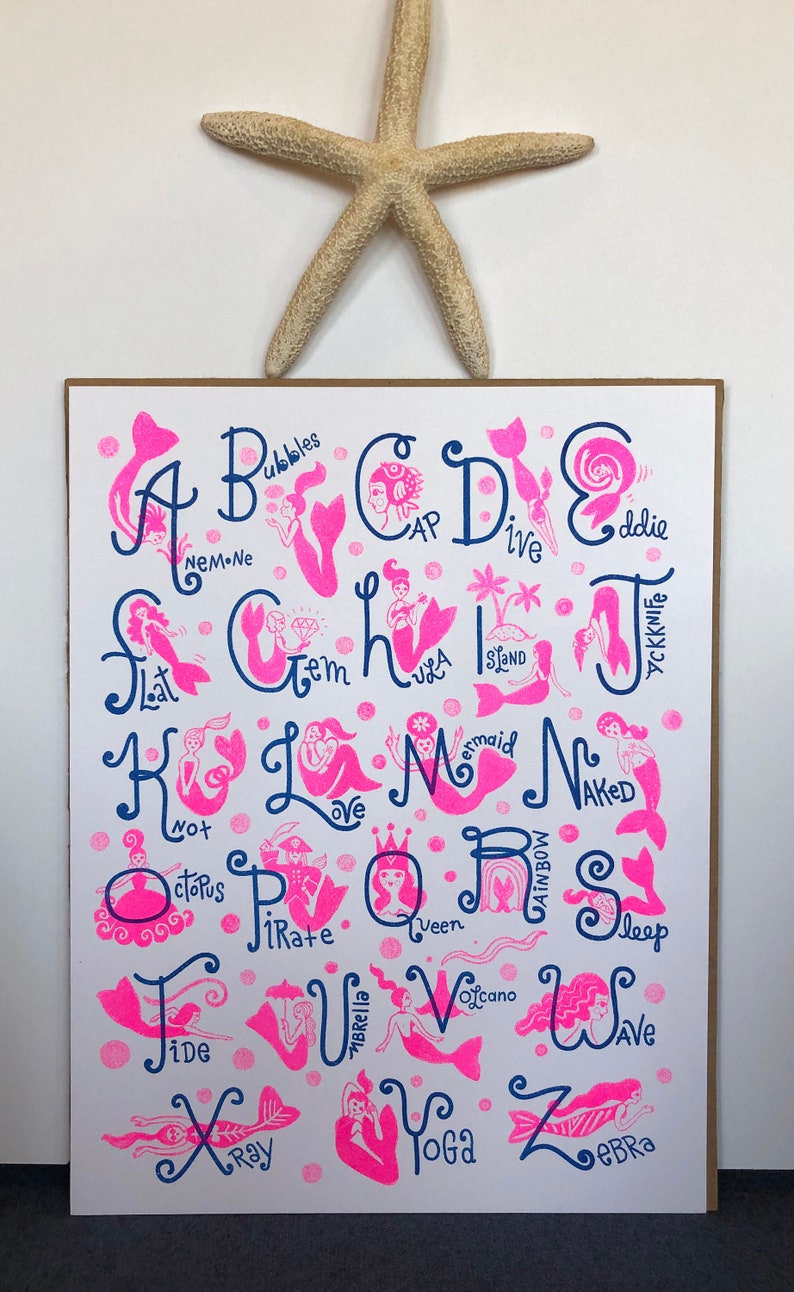 Anemone
Bubbles
CAP
Dive
Eddie
float
Gem
hULA
ISLAND
JACKKNIFE
Knot
Love
Mermaid
NAKED
Octopus
PiRate
Queen
RAiNBOW
Sleep
TiDE
UMBRella
VOLCANO
WAVE
XRay
YOGa
ZeBRa